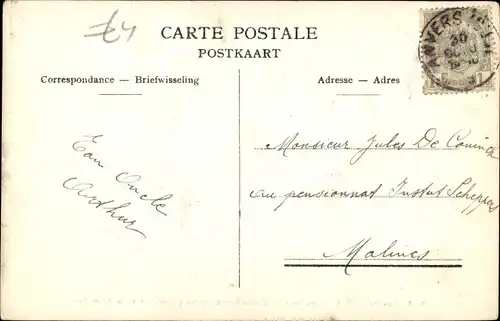 £4
CARTE POSTALE
POSTKAART
Correspondance — Briefwisseling
Adresse — Adres
ANVERS
1
Ton Oncle
Arthur
Monsieur Jules De Coninck
au pensionnat Institut Scheppers
Malines